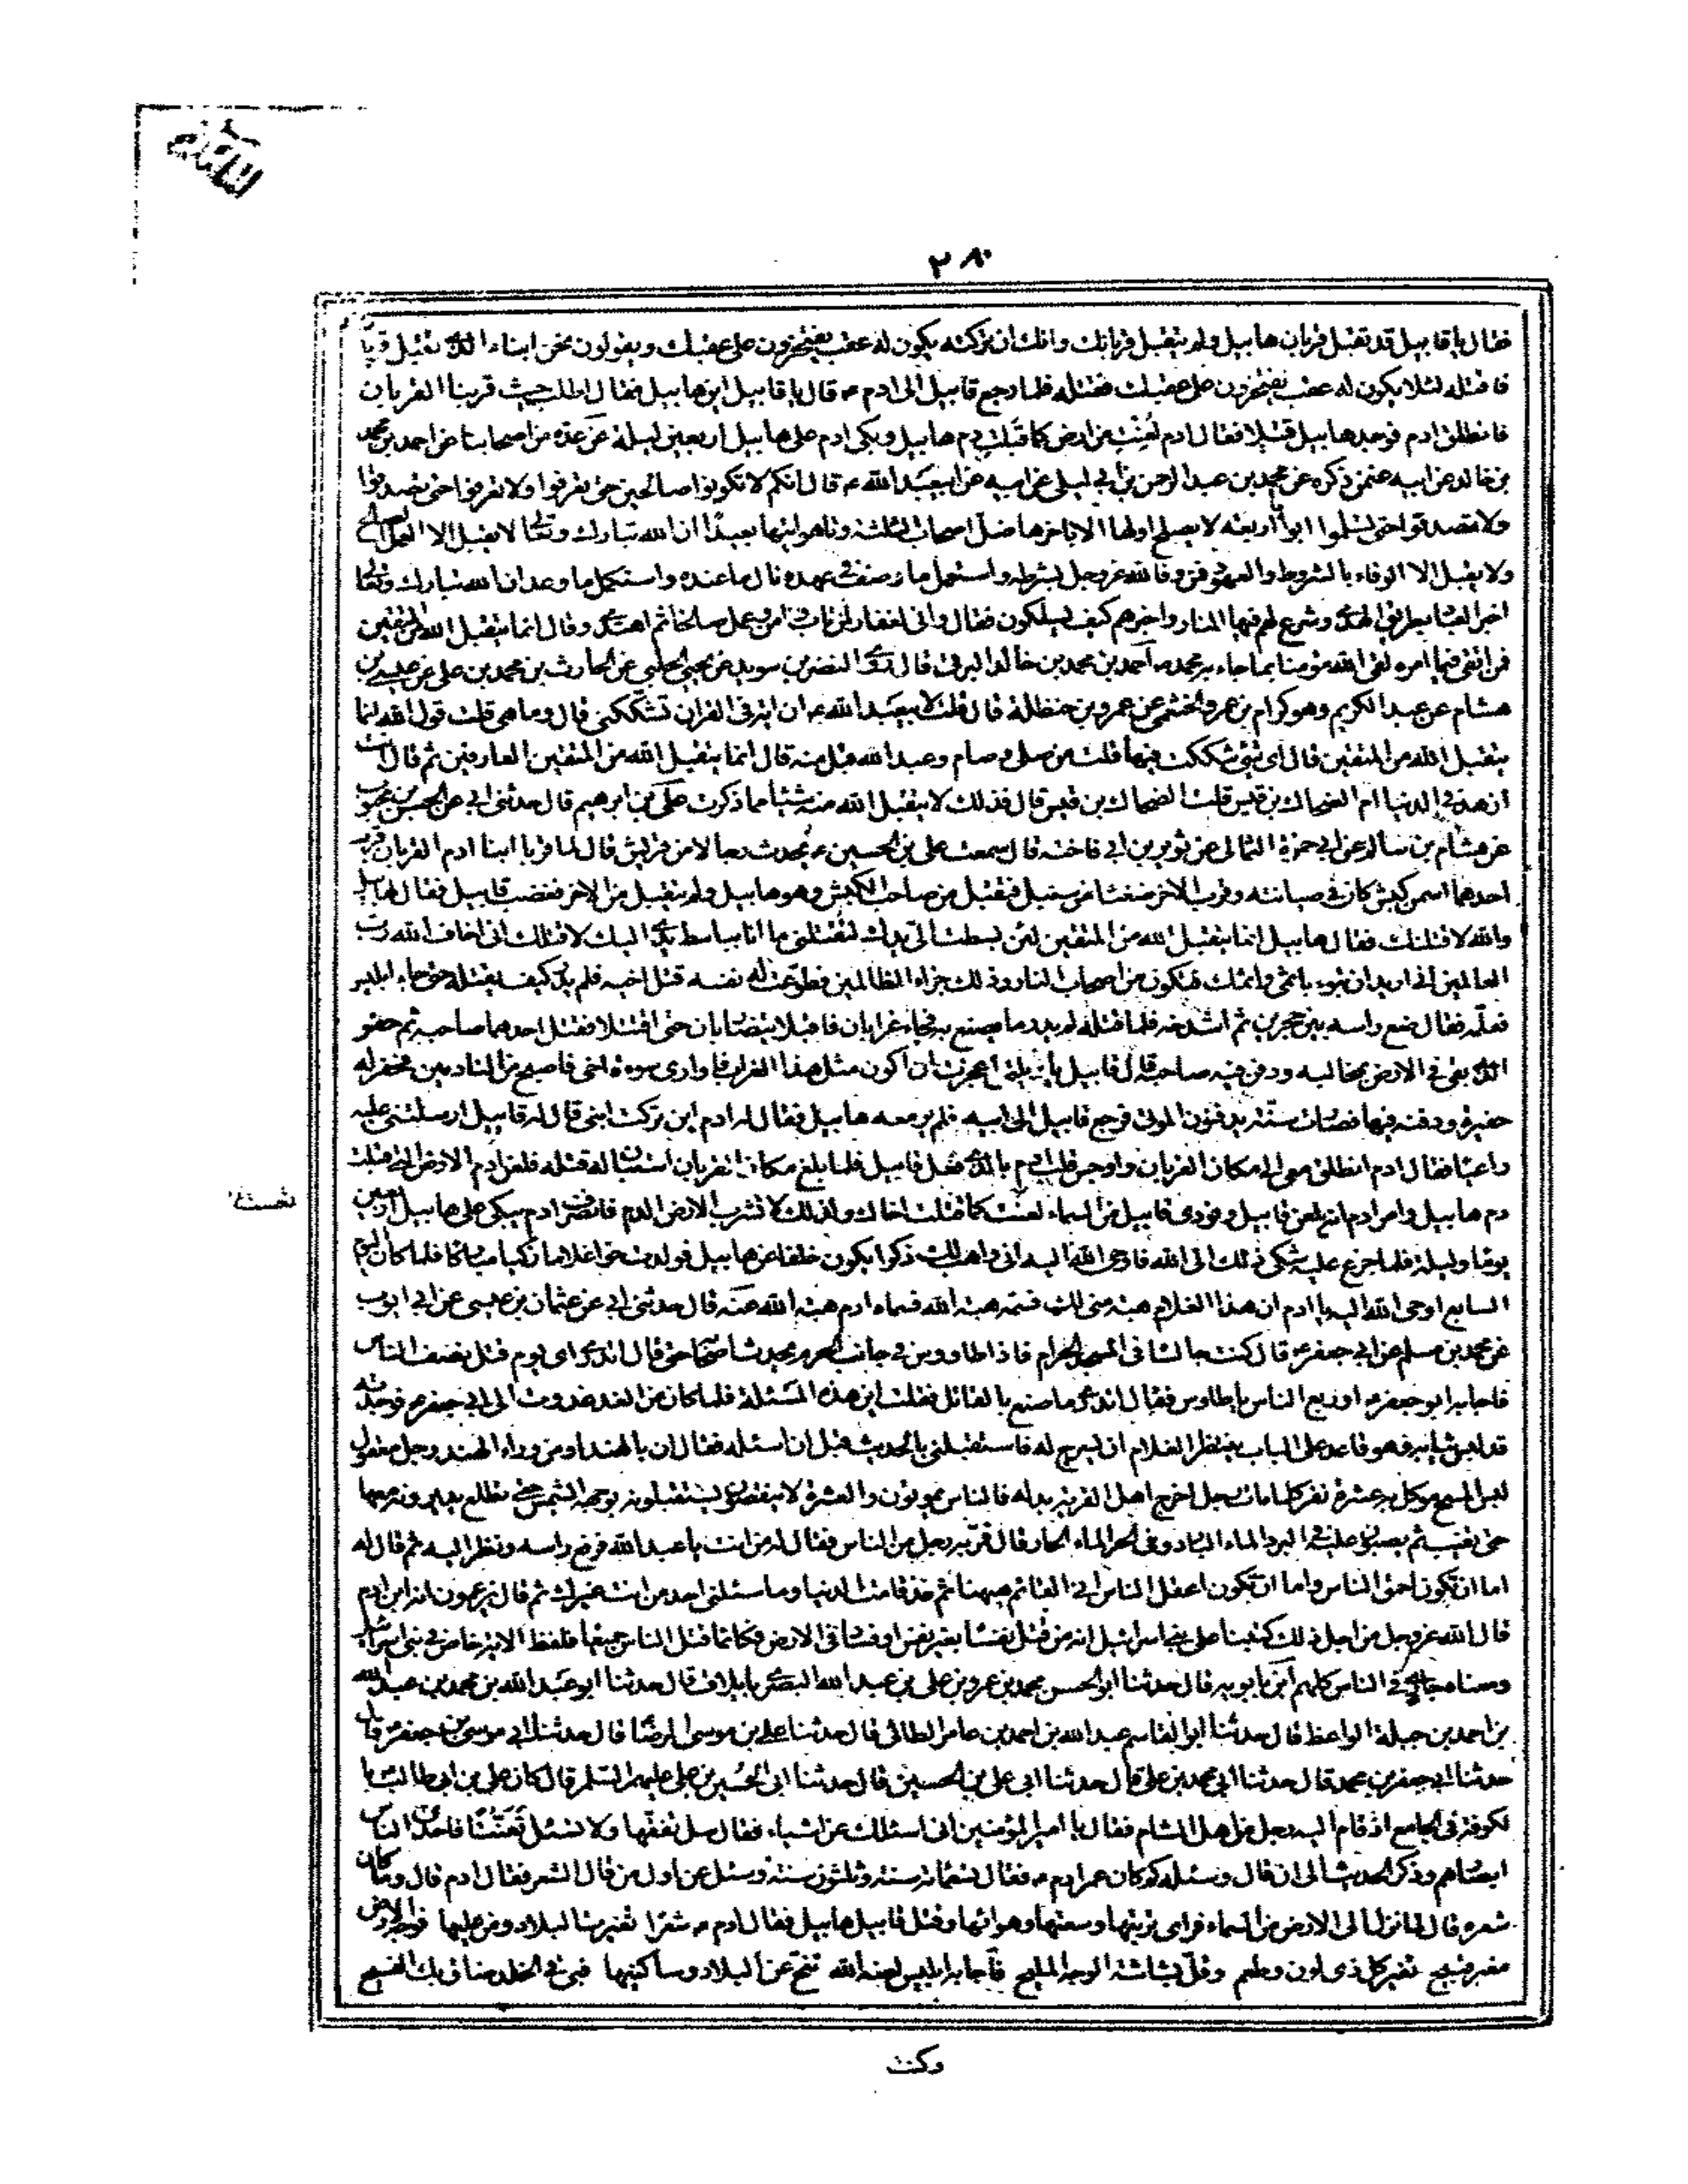 المائدة
٢٨٠
فقال يا قابيل قد تقبل قربان هابيل ولم يتقبل قربانك وانك ان تركته يكون له عقب يفتخرون على عقبك ويقولون نحن ابناء الذى تقبل قربا
فاقتله لئلا يكون له عقب يفتخرون على عقبك فقتله فلما رجع قابيل الى ادم ع قال يا قابيل اين هابيل فقال اطلب حيث قربنا القربان
فانطلق ادم فوجد هابيل قتيلا فقال ادم لعنت من ارض كما قبلت دم هابيل وبكى ادم على هابيل اربعين ليلة عن عدة من اصحابنا عن احمد بن محمد
بن خالد عن ابيه عمن ذكره عن محمد بن عبد الرحمن بن ابى ليلى عن ابيه عن ابيعبد الله ع قال انكم لا تكونوا صالحين حتى تعرفوا ولا تعرفوا حتى تصدقوا
ولا تصدقوا حتى تسلموا ابوابا اربعة لا يصلح اولها الا باخرها ضل اصحاب الثلثة وتاهوا تيها بعيدا ان الله تبارك وتعالى لا يقبل الا العمل الصالح
ولا يقبل الا الوفاء بالشروط والعهود فمن وفا لله عز وجل بشرطه واستعمل ما وصف فى عهده نال ما عنده واستكمل ما وعد ان الله تبارك وتعالى
اخبر العباد بطرق الهدى وشرع لهم فيها المنار واخبرهم كيف يسلكون فقال وانى لغفار لمن تاب وامن وعمل صالحا ثم اهتدى وقال انما يتقبل الله من المتقين
فمن اتقى فيما امره لقى الله مؤمنا بما جاء به محمد ص احمد بن محمد بن خالد البرقى قال النضر بن سويد عن يحيى الحلبى عن الحارث بن محمد بن على عن عبيس بن
هشام عن عبد الكريم وهو كرام بن عمرو الخثعمى عن عمرو بن حنظلة قال قلت لابيعبد الله ع ان اية فى القران تشككنى قال وما هى قلت قول الله انما
يتقبل الله من المتقين قال اى شئ شككت فيها قلت من صلى وصام وعبد الله قبل منه قال انما يتقبل الله من المتقين العارفين ثم قال انت
ازهد فى الدنيا ام الضحاك بن قيس قلت الضحاك بن قيس قال فذلك لا يتقبل الله منه شيئا مما ذكرت على بن ابرهيم قال حدثنى ابى عن الحسن بن محبوب
عن هشام بن سالم عن ابى حمزة الثمالى عن ثوير بن ابى فاخته قال سمعت على بن الحسين ع يحدث رجالا من قريش قال لما قربا ابنا ادم القربان قرب
احدهما اسمن كبش كان فى صيانته وقرب الاخر ضغثا من سنبل فتقبل من صاحب الكبش وهو هابيل ولم يتقبل من الاخر فغضب قابيل فقال لهابيل
والله لاقتلنك فقال هابيل انما يتقبل الله من المتقين لئن بسطت الى يدك لتقتلنى ما انا بباسط يدى اليك لاقتلك انى اخاف الله رب
العالمين انى اريد ان تبوء باثمى واثمك فتكون من اصحاب النار وذلك جزاء الظالمين فطوعت له نفسه قتل اخيه فلم يدر كيف يقتله حتى جاء ابليس
فعلمه فقال ضع راسه بين حجرين ثم اشدخه فلما قتله لم يدر ما يصنع به فجاء غرابان فاقبلا يتضاربان حتى اقتتلا فقتل احدهما صاحبه ثم حفر
الذى بقى فى الارض بمخاليبه ودفن فيه صاحبه قال قابيل يا ويلتى اعجزت ان اكون مثل هذا الغراب فاوارى سوءة اخى فاصبح من النادمين فحفر له
حفيرة ودفنه فيها فصارت سنة يدفنون الموتى فرجع قابيل الى ابيه فلم ير معه هابيل فقال له ادم اين تركت ابنى قال له قابيل ارسلتنى عليه
راعيا فقال ادم انطلق معى الى مكان القربان واوجس قلب ادم بالذى فعل قابيل فلما بلغ مكان القربان استبان له قتله فلعن ادم الارض التى قبلت
دم هابيل وامر ادم ان يلعن قابيل ونودى قابيل من السماء لعنت كما قتلت اخاك ولذلك لا تشرب الارض الدم فانصرف ادم يبكى على هابيل اربعين
يوما وليلة فلما جزع عليه شكى ذلك الى الله فاوحى الله اليه انى واهب لك ذكرا يكون خلفا عن هابيل فولدت حوا غلاما زكيا مباركا فلما كان اليوم
السابع اوحى الله اليه يا ادم ان هذا الغلام هبة منى لك فسمه هبة الله فسماه ادم هبة الله عنه قال حدثنى ابى عن عثمان بن عيسى عن ابى ايوب
عن محمد بن مسلم عن ابى جعفر ع قال كنت جالسا فى المسجد الحرام فاذا طاووس فى جانب الحرم يحدث اصحابه حتى قال اتدرى اى يوم قتل نصف الناس
فاجابه ابو جعفر ع او ربع الناس يا طاوس فقال اتدرى ما صنع بالقاتل فقلت ان هذه المسئلة فلما كان من الغد غدوت الى ابى جعفر ع فوجدته
قد لبس ثيابه وهو قاعد على الباب ينتظر الغلام ان يسرج له فاستقبلنى بالحديث قبل ان اسئله فقال ان بالهند او من وراء الهند رجل معقول
لبس المسح موكل به عشرة نفر كلما مات رجل اخرج اهل القرية بدله فالناس يموتون والعشرة لا ينقصون يستقبلونه بوجه الشمس حين تطلع يديرونه معها
حتى تغيب ثم يصبون عليه فى البرد الماء البارد وفى الحر الماء الحار قال فمر به رجل من الناس فقال له من انت يا عبد الله فرفع راسه ونظر اليه ثم قال له
اما ان تكون احمق الناس واما ان تكون اعقل الناس انى لقائم هيهنا منذ قامت الدنيا وما سئلنى احد من انت غيرك ثم قال يزعمون انه ابن ادم
قال الله عز وجل من اجل ذلك كتبنا على بنى اسرائيل انه من قتل نفسا بغير نفس او فساد فى الارض فكانما قتل الناس جميعا فلفظ الاية خاص فى بنى اسرائيل
ومعناه جار فى الناس كلهم ابن بابويه قال حدثنا ابو الحسن محمد بن عمرو بن على بن عبد الله البصرى بايلاق قال حدثنا ابو عبد الله بن محمد بن عبد الله
بن احمد بن جبلة الواعظ قال حدثنا ابو القاسم عبد الله بن احمد بن عامر الطائى قال حدثنا على بن موسى الرضا قال حدثنا ابى موسى بن جعفر ع قال
حدثنا ابى جعفر بن محمد قال حدثنا ابى محمد بن على قال حدثنا ابى على بن الحسين قال حدثنا ابى الحسين بن على عليهم السلم قال كان على بن ابى طالب با
لكوفة فى الجامع اذ قام اليه رجل من اهل الشام فقال يا امير المؤمنين انى اسئلك عن اشياء فقال سل تفقها ولا تسئل تعنتا فاحدق الناس
ابصارهم وذكر الحديث الى ان قال وسئله كم كان عمر ادم ع فقال تسعمائة سنة وثلثون سنة وسئل عن اول من قال الشعر فقال ادم قال وما كان
شعره قال لما نزل الى الارض من السماء فراى تربتها وسعتها وهوائها وقتل قابيل هابيل فقال ادم ع شعرا تغيرت البلاد ومن عليها فوجه الارض
مغبر قبيح تغير كل ذى لون وطعم وقل بشاشة الوجه المليح فاجابه ابليس لعنه الله تنح عن البلاد وساكنيها فبى فى الخلد ضاق بك الفسيح
وكنت